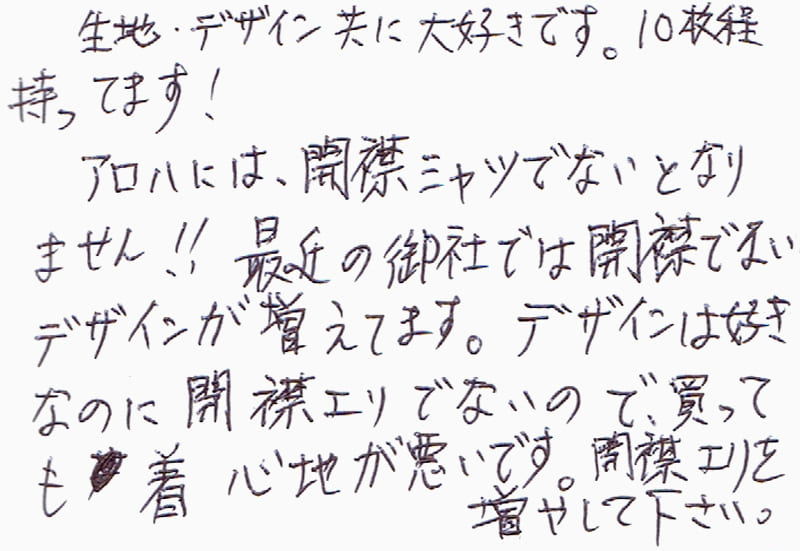 生地・デザイン共に大好きです。10枚程
持ってます!
アロハには、開襟シャツでないとなり
ません!! 最近の御社では開襟でない
デザインが増えてます。デザインは好き
なのに開襟エリでないので、買って
も着心地が悪いです。開襟エリを
増やして下さい。